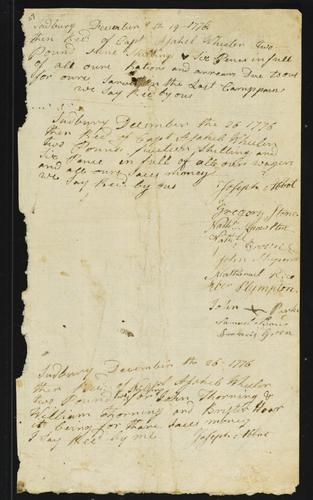 Sudbury December the 19 1776
then Recd of Capt Asahel Wheeler two
Pound Nine Shilling & Six Pence in full
of all oure Rations and arrears Due to us
for oure Sarvice in the Last Camppane
we Say Recd by ous
Sudbury December the 26 1776
then Recd of Capt Asahel Wheeler
two Pounds Shilling and
Six Pence in full of all our wages
and all our Sase money
we Say Recd by ous
Joseph Abbot
Gregory Stone
Nathl
John
Nathaniel
Plympton
John X Park
Samuel
Green
Sudbury December the 26 1776
then Recd of Asahel Wheeler
two Pound for John Thorning &
William Thorning and Brister Hoar
it being for thare Sases money
I Say Recd by me
Joseph Abbot